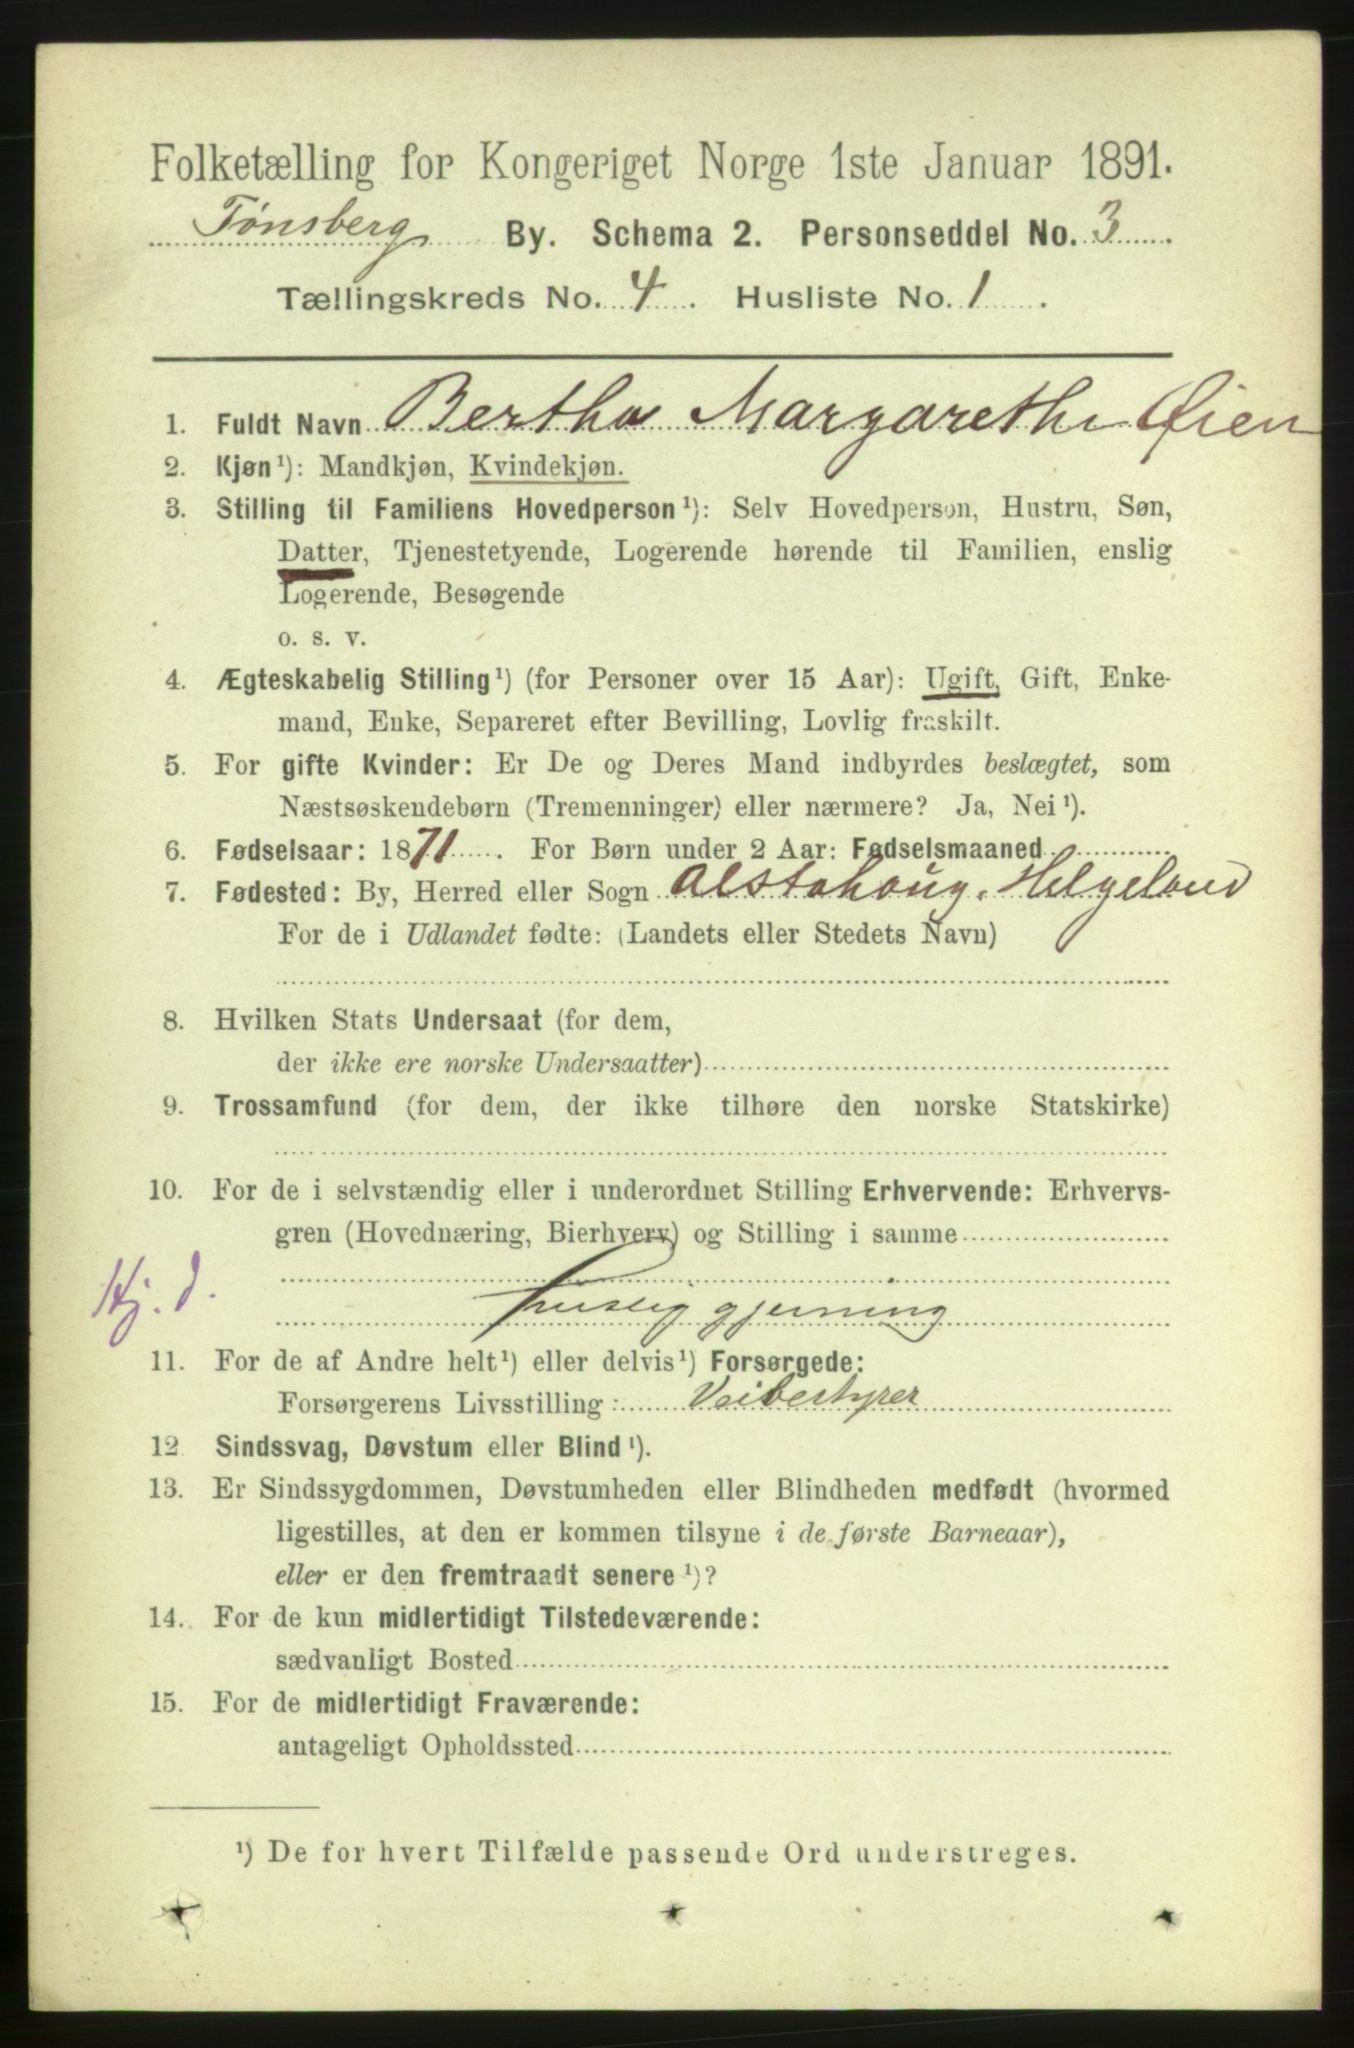 Folketælling for Kongeriget Norge 1ste Januar 1891.
Tønsberg By. Schema 2. Personseddel No. 3
Tællingskreds No. 4. Husliste No. 1.
1. Fuldt Navn Bertha Margarethe Øien
2. Kjøn¹): Mandkjøn, Kvindekjøn.
3. Stilling til Familiens Hovedperson¹): Selv Hovedperson, Hustru, Søn,
Datter, Tjenestetyende, Logerende hørende til Familien, enslig
Logerende, Besøgende
o. s. v.
4. Ægteskabelig Stilling¹) (for Personer over 15 Aar): Ugift, Gift, Enke-
mand, Enke, Separeret efter Bevilling, Lovlig fraskilt.
5. For gifte Kvinder: Er De og Deres Mand indbyrdes beslægtet, som
Næstsøskendebørn (Tremenninger) eller nærmere? Ja, Nei¹).
6. Fødselsaar: 1871. For Børn under 2 Aar: Fødselsmaaned
7. Fødested: By, Herred eller Sogn Alstahoug. Helgeland
For de i Udlandet fødte: (Landets eller Stedets Navn)
8. Hvilken Stats Undersaat (for dem,
der ikke ere norske Undersaatter)
9. Trossamfund (for dem, der ikke tilhøre den norske Statskirke)
10. For de i selvstændig eller i underordnet Stilling Erhvervende: Erhvervs-
gren (Hovednæring, Bierhverv) og Stilling i samme
Hj. d.
huslig gjerning
11. For de af Andre helt¹) eller delvis¹) Forsørgede:
Forsørgerens Livsstilling: Veibestyrer
12 Sindssvag, Døvstum eller Blind¹).
13. Er Sindssygdommen, Døvstumheden eller Blindheden medfødt (hvormed
ligestilles, at den er kommen tilsyne i de første Barneaar),
eller er den fremtraadt senere¹)?
14. For de kun midlertidigt Tilstedeværende:
sædvanligt Bosted
15. For de midlertidigt Fraværende:
antageligt Opholdssted
¹) De for hvert Tilfælde passende Ord understreges.